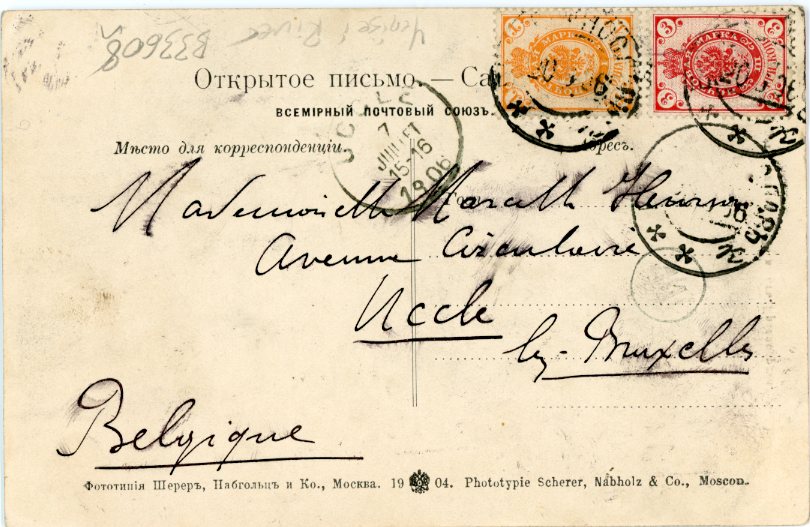 Yenisei River
B33608
Открытое письмо. — Са
ВСЕМІРНЫЙ ПОЧТОВЫЙ СОЮЗЪ.
Мѣсто для корреспонденціи.
дресъ.
UCCLE
7
JUILLET
15-16
1906
Mademoiselle Marcelle
Avenue Circulaire
Uccle
lez-Bruxelles
Belgique
Фототипія Шереръ, Набгольцъ и Ко., Москва. 19 04. Phototypie Scherer, Nabholz & Co., Moscou.